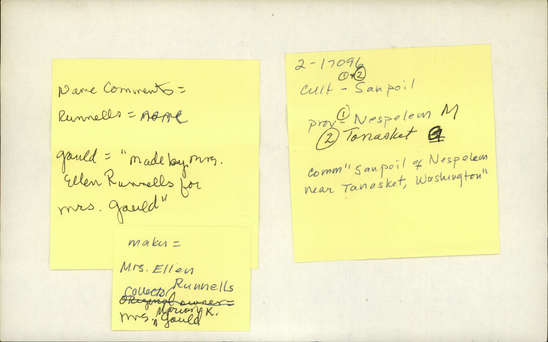 Name Comments =
Runnells = none
gould = "made by mrs.
Ellen Runnells for
mrs. gould"
maker =
Mrs. Ellen
Runnells
Collector
Original owner =
mrs. K. Gould
2-17096
① + ②
Cult - Sanpoil
prov - ① Nespelem M
② Tonasket
comm "Sanpoil of Nespelem
near Tanasket, Washington"